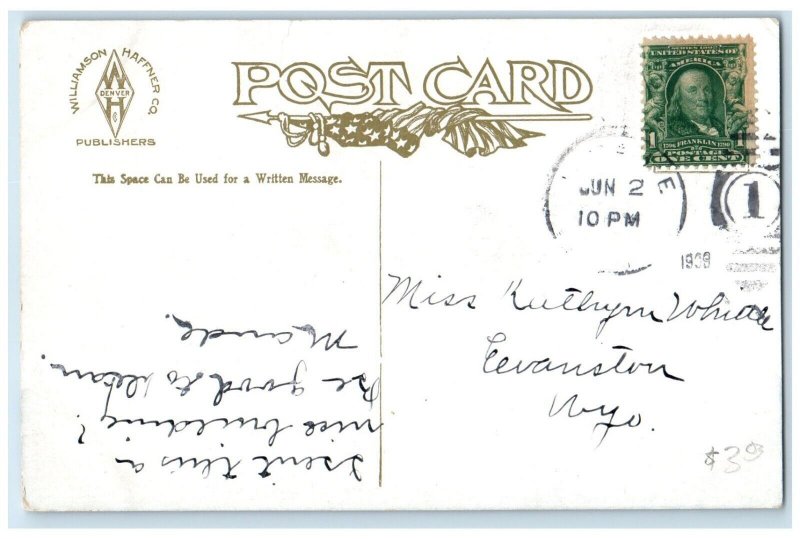 WILLIAMSON HAFFNER CO.
W
DENVER
H
PUBLISHERS
POST CARD
SERIES 1902
UNITED STATES OF
AMERICA
1 1706 FRANKLIN 1790
POSTAGE
ONE CENT
This Space Can Be Used for a Written Message.
JUN 2
10 PM
1
Miss Kathryn
Evanston
Wyo.
Isent this a
nice building?
Be good to
Maude.